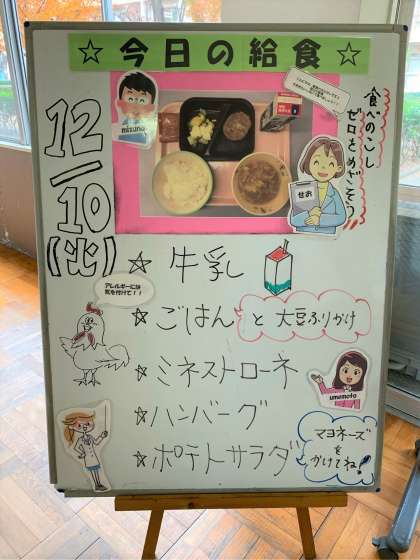 ☆今日の給食☆
12/10(火)
mizuno
食べのこし
ゼロをめざそう
せお
☆牛乳
☆ごはんと大豆ふりかけ
アレルギーには
気を付けて!!
☆ミネストローネ
☆ハンバーグ
umemoto
☆ポテトサラダ
マヨネーズ
を
かけてね!